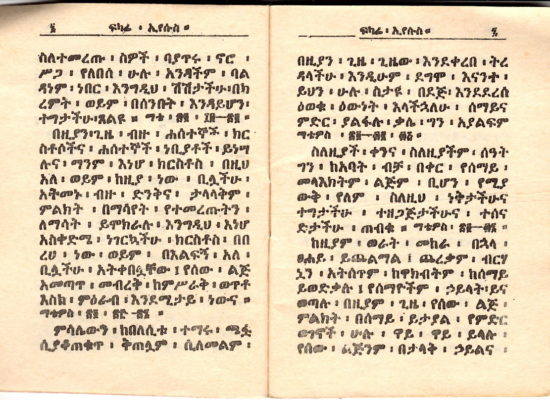 ፮ ፍካሬ ፡ ኢየሱስ ።
ስለተመረጡ ፡ ሰዎች ፡ ባያጥሩ ፡ ኖሮ ፡
ሥጋ ፡ የለበሰ ፡ ሁሉ ፡ አንዳችም ፡ ባል
ዳነም ፡ ነበር ፡ እንግዲህ ፡ ሽሽታችሁ ፡ በክ
ረምት ፡ ወይም ፡ በሰንበት ፡ እንዳይሆን ፡
ተግታችሁ ፡ ጸልዩ ።
በዚያን ፡ ጊዜ ፡ ብዙ ፡ ሐሰተኞች ፡ ክር
ስቶሶችና ፡ ሐሰተኞች ፡ ነቢያቶች ፡ ይነሣ
ሉና ፡ ማንም ፡ እነሆ ፡ ክርስቶስ ፡ በዚህ
አለ ፡ ወይም ፡ ከዚያ ፡ ነው ፡ ቢሏችሁ ፡
አትመኑ ፡ ብዙ ፡ ድንቅና ፡ ታላላቅም ፡
ምልክት ፡ በማሳየት ፡ የተመረጡትን ፡
ለማሳት ፡ ይሞክራሉ ፡ እንግዲህ ፡ እነሆ
አስቀድሜ ፡ ነገርኳችሁ ፡ ክርስቶስ ፡ በበ
ረሀ ፡ ነው ፡ ወይም ፡ በእልፍኝ ፡ አለ ፡
ቢሏችሁ ፡ አትቀበሏቸው ፤ የሰው ፡ ልጅ
አመጣጥ ፡ መብረቅ ፡ ከምሥራቅ ፡ ወጥቶ
እስከ ፡ ምዕራብ ፡ እንደሚታይ ፡ ነውና ።
ማቴዎስ ፡
ምሳሌውን ፡ ከበለሲቱ ፡ ተማሩ ፡ ጫፏ
ሲያቆጠቁጥ ፡ ቅጠሏም ፡ ሲለመልም ፡
ፍካሬ ፡ ኢየሱስ ። ፯
በዚያን ፡ ጊዜ ፡ ጊዜው ፡ እንደቀረበ ፡ ትረ
ዳላችሁ ፡ እንዲሁም ፡ ደግሞ ፡ እናንተ ፡
ይህን ፡ ሁሉ ፡ ስታዩ ፡ በደጅ ፡ እንደደረሰ
ዕወቁ ፡ ዕውነት ፡ እላችኋለሁ ፡ ሰማይና
ምድር ፡ ያልፋሉ ፡ ቃሌ ፡ ግን ፡ አያልፍም
ማቴዎስ ፡
ስለዚያች ፡ ቀንና ፡ ስለዚያችም ፡ ሰዓት
ግን ፡ ከአባት ፡ ብቻ ፡ በቀር ፡ የሰማይ ፡
መላእክትም ፡ ልጅም ፡ ቢሆን ፡ የሚያ
ውቅ ፡ የለም ፡ ስለዚህ ፡ ነቅታችሁና
ተግታችሁ ፡ ተዘጋጅታችሁና ፡ ተሰና
ድታችሁ ፡ ጠብቁ ። ማቴዎስ ፡
ከዚያም ፡ ወራት ፡ መከራ ፡ በኋላ ፡
ፀሐይ ፡ ይጨልማል ፤ ጨረቃም ፡ ብርሃ
ኗን ፡ አትሰጥም ፡ ከዋክብትም ፡ ከሰማይ
ይወድቃሉ ፤ የሰማዮችም ፡ ኃይላት ፡ ይና
ወጣሉ ፡ በዚያም ፡ ጊዜ ፡ የሰው ፡ ልጅ ፡
ምልክት ፡ በሰማይ ፡ ይታያል ፡ የምድር
ወገኖች ፡ ሁሉ ፡ ዋይ ፡ ዋይ ፡ ይላሉ ፡
የሰው ፡ ልጅንም ፡ በታላቅ ፡ ኃይልና ፡